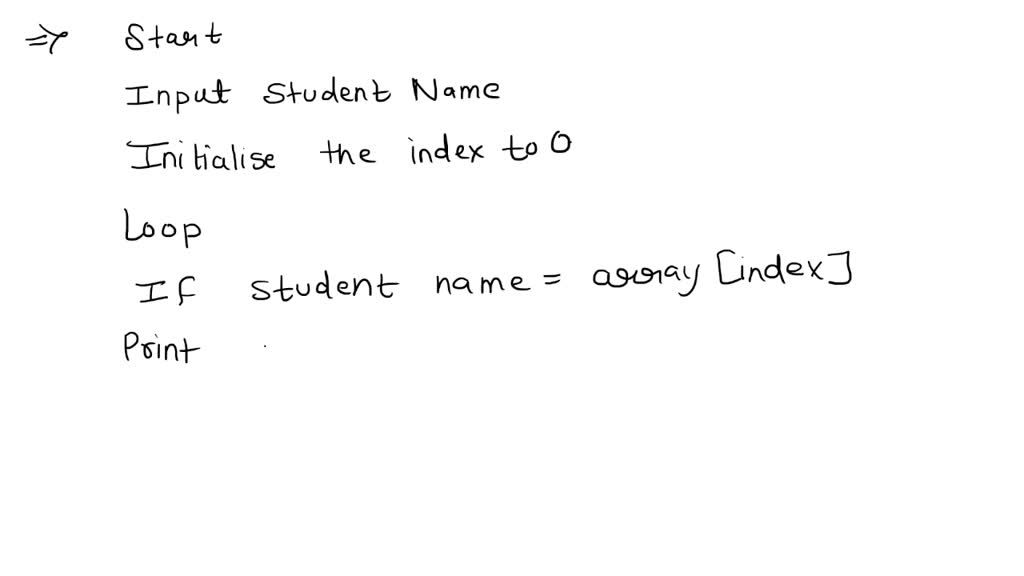 ⇒ Start
Input Student Name
Initialise the index to 0
Loop
If student name = array [index]
Print